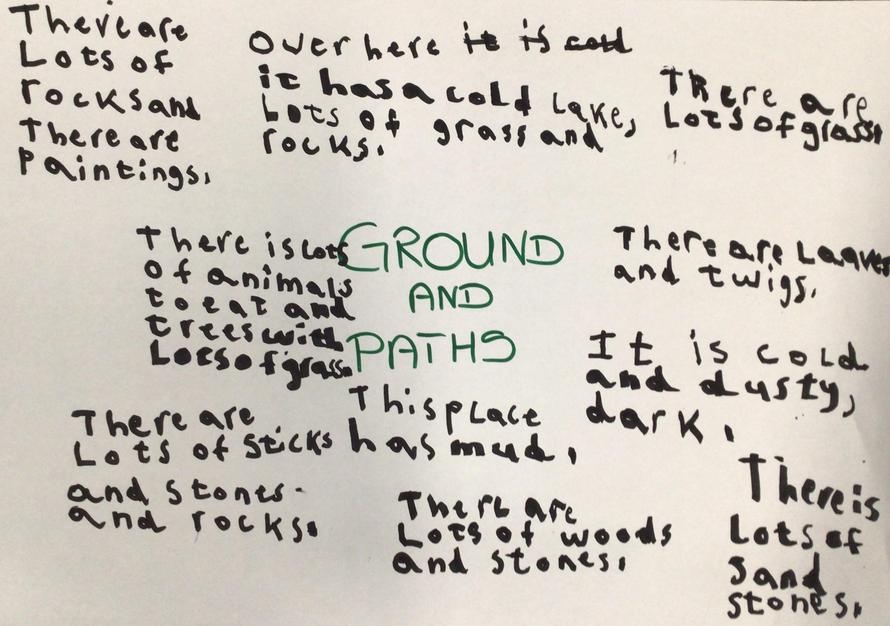 There are
Lots of
rocks and
There are
Paintings.
Over here it is cold
it has a cold Lake,
Lots of grass and
rocks.
There are
Lots of grass.
There is Lots
of animals
to eat and
trees with
Lots of grass.
GROUND
AND
PATHS
There are Leaves
and twigs.
It is cold
and dusty,
dark.
There are
Lots of sticks
and stones.
and rocks.
This place
has mud.
There are
Lots of woods
and stones.
There is
Lots of
sand
stones.